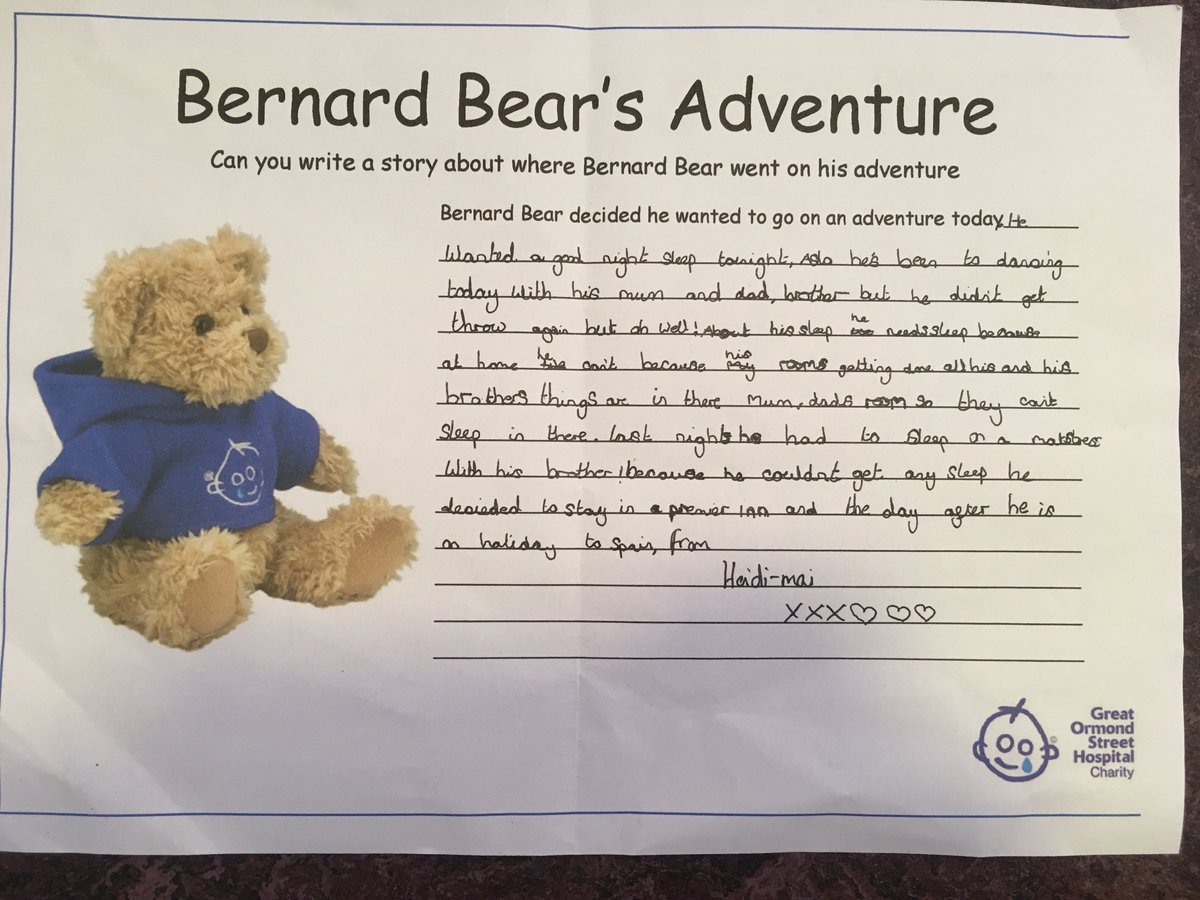 Bernard Bear's Adventure
Can you write a story about where Bernard Bear went on his adventure
Bernard Bear decided he wanted to go on an adventure today. He
Wanted a good night sleep tonight, Aslo he's been to dancing
today with his mum and dad, brother but he didn't get
throw again but oh well! About his sleep he needs sleep because
at home he can't because his rooms getting done all his and his
brothers things are in there Mum, dads room so they can't
sleep in there. last night he had to sleep on a matstress
With his brother! because he couldn't get any sleep he
decieded to stay in a premier inn and the day after he is
on haliday to spain, from
Heidi-mai
xxx♡♡♡
Great
Ormond
Street
Hospital
Charity